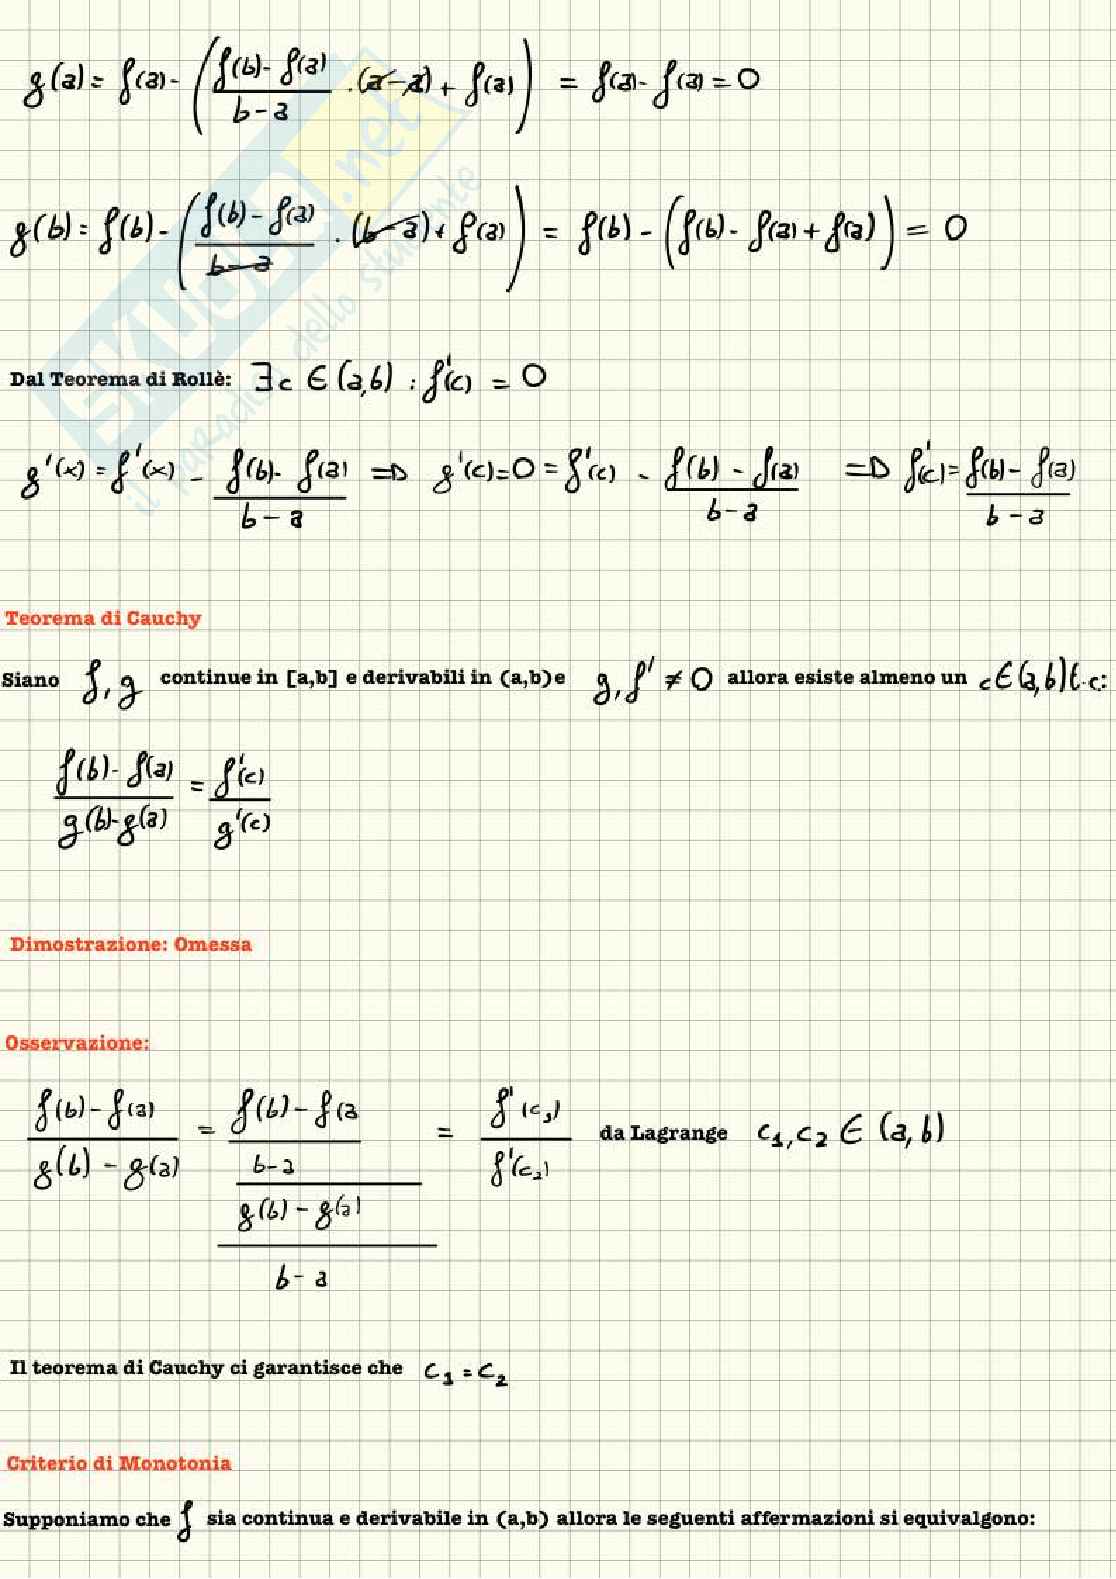 g(a) = f(a) - ( f(b) - f(a) / b - a · (a - a) + f(a) ) = f(a) - f(a) = 0
g(b) = f(b) - ( f(b) - f(a) / b - a · (b - a) + f(a) ) = f(b) - ( f(b) - f(a) + f(a) ) = 0
Dal Teorema di Rollè: ∃ c ∈ (a,b) : f'(c) = 0
g'(x) = f'(x) - f(b) - f(a) / b - a => g'(c) = 0 = f'(c) - f(b) - f(a) / b - a => f'(c) = f(b) - f(a) / b - a
Teorema di Cauchy
Siano f, g continue in [a,b] e derivabili in (a,b)e g, f' ≠ 0 allora esiste almeno un c ∈ (a,b) t.c:
f(b) - f(a) / g(b) - g(a) = f'(c) / g'(c)
Dimostrazione: Omessa
Osservazione:
f(b) - f(a) / g(b) - g(a) = f(b) - f(a / b - a / g(b) - g(a) / b - a = f'(c₁) / f'(c₂) da Lagrange c₁, c₂ ∈ (a,b)
Il teorema di Cauchy ci garantisce che c₁ = c₂
Criterio di Monotonia
Supponiamo che f sia continua e derivabile in (a,b) allora le seguenti affermazioni si equivalgono:
SKUOLA.net
il paradiso dello studente